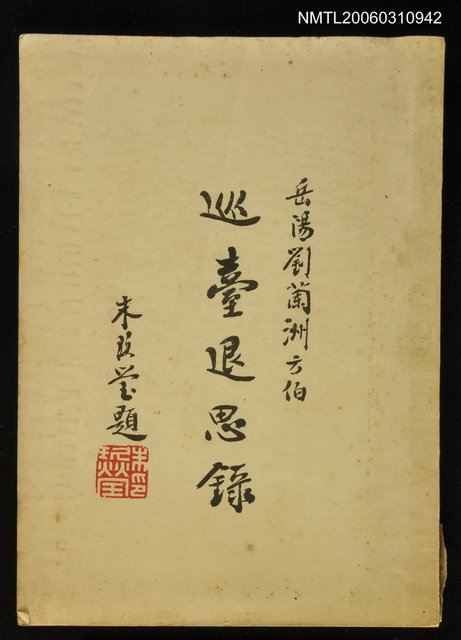 NMTL20060310942
岳陽劉蘭洲方伯
巡臺退思錄
朱玖瑩題